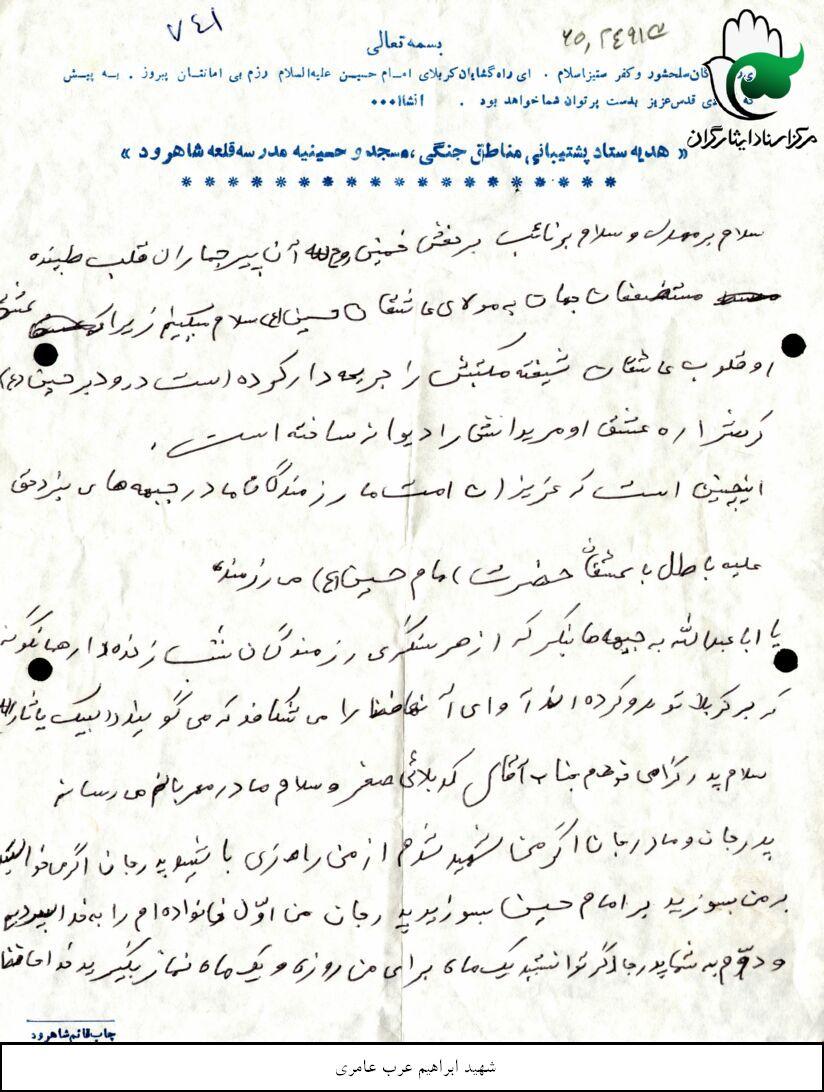 ۷۴۱
بسمه تعالی
گان سلحشور و کفر ستیز اسلام . ای راه گشایان کربلای امام حسین علیه‌السلام رزم بی امانتان پیروز . به پیش
که دی قدس عزیز بدست پرتوان شما خواهد بود . انشاا...
مرکز اسناد ایثارگران
« هدیه ستاد پشتیبانی مناطق جنگی ، مسجد و حسینیه مدرسه قلعه شاهرود »
* * * * * * * * * * * * * * * * * * *
سلام بر مهدی و سلام بر نائب بر حقش خمینی روح الله آن پیر جماران قلب طپنده
مستضعفان جهان به مولای عاشقان حسین (ع) سلام میکنیم زیرا که عشق
او قلوب عاشقان شیفته مکتبش را جریحه دار کرده است درود بر حسین (ع)
که شراره عشق او مریدانش را دیوانه ساخته است .
اینچنین است که عزیزان امت ما رزمندگان ما در جبهه های نبرد حق
علیه باطل با عشقتان حضرت امام حسین (ع) می رزمند
یا ابا عبدالله به جبهه ها بنگر که از هر سنگری رزمندگان شب زنده دار همانگونه
که بر کربلا تو رو کرده اند آوای آنها فضا را می شکافد که می گویند لبیک یا ثارالله
سلام پدر گرامی خودم جناب آقای کربلائی صفر و سلام مادر مهربانم می رسانم
پدر جان و مادر جان اگر من شهید شدم از من راضی باشید پدر جان اگر می خواهید
بر من بسوزید بر امام حسین بسوزید پدر جان من اول خانواده ام را به خدا سپردیم
و دوم به شما پدر جان اگر توانستید یک ماه برای من روزه و یک ماه نماز بگیرید خداحافظ
چاپ قائم شاهرود
شهید ابراهیم عرب عامری